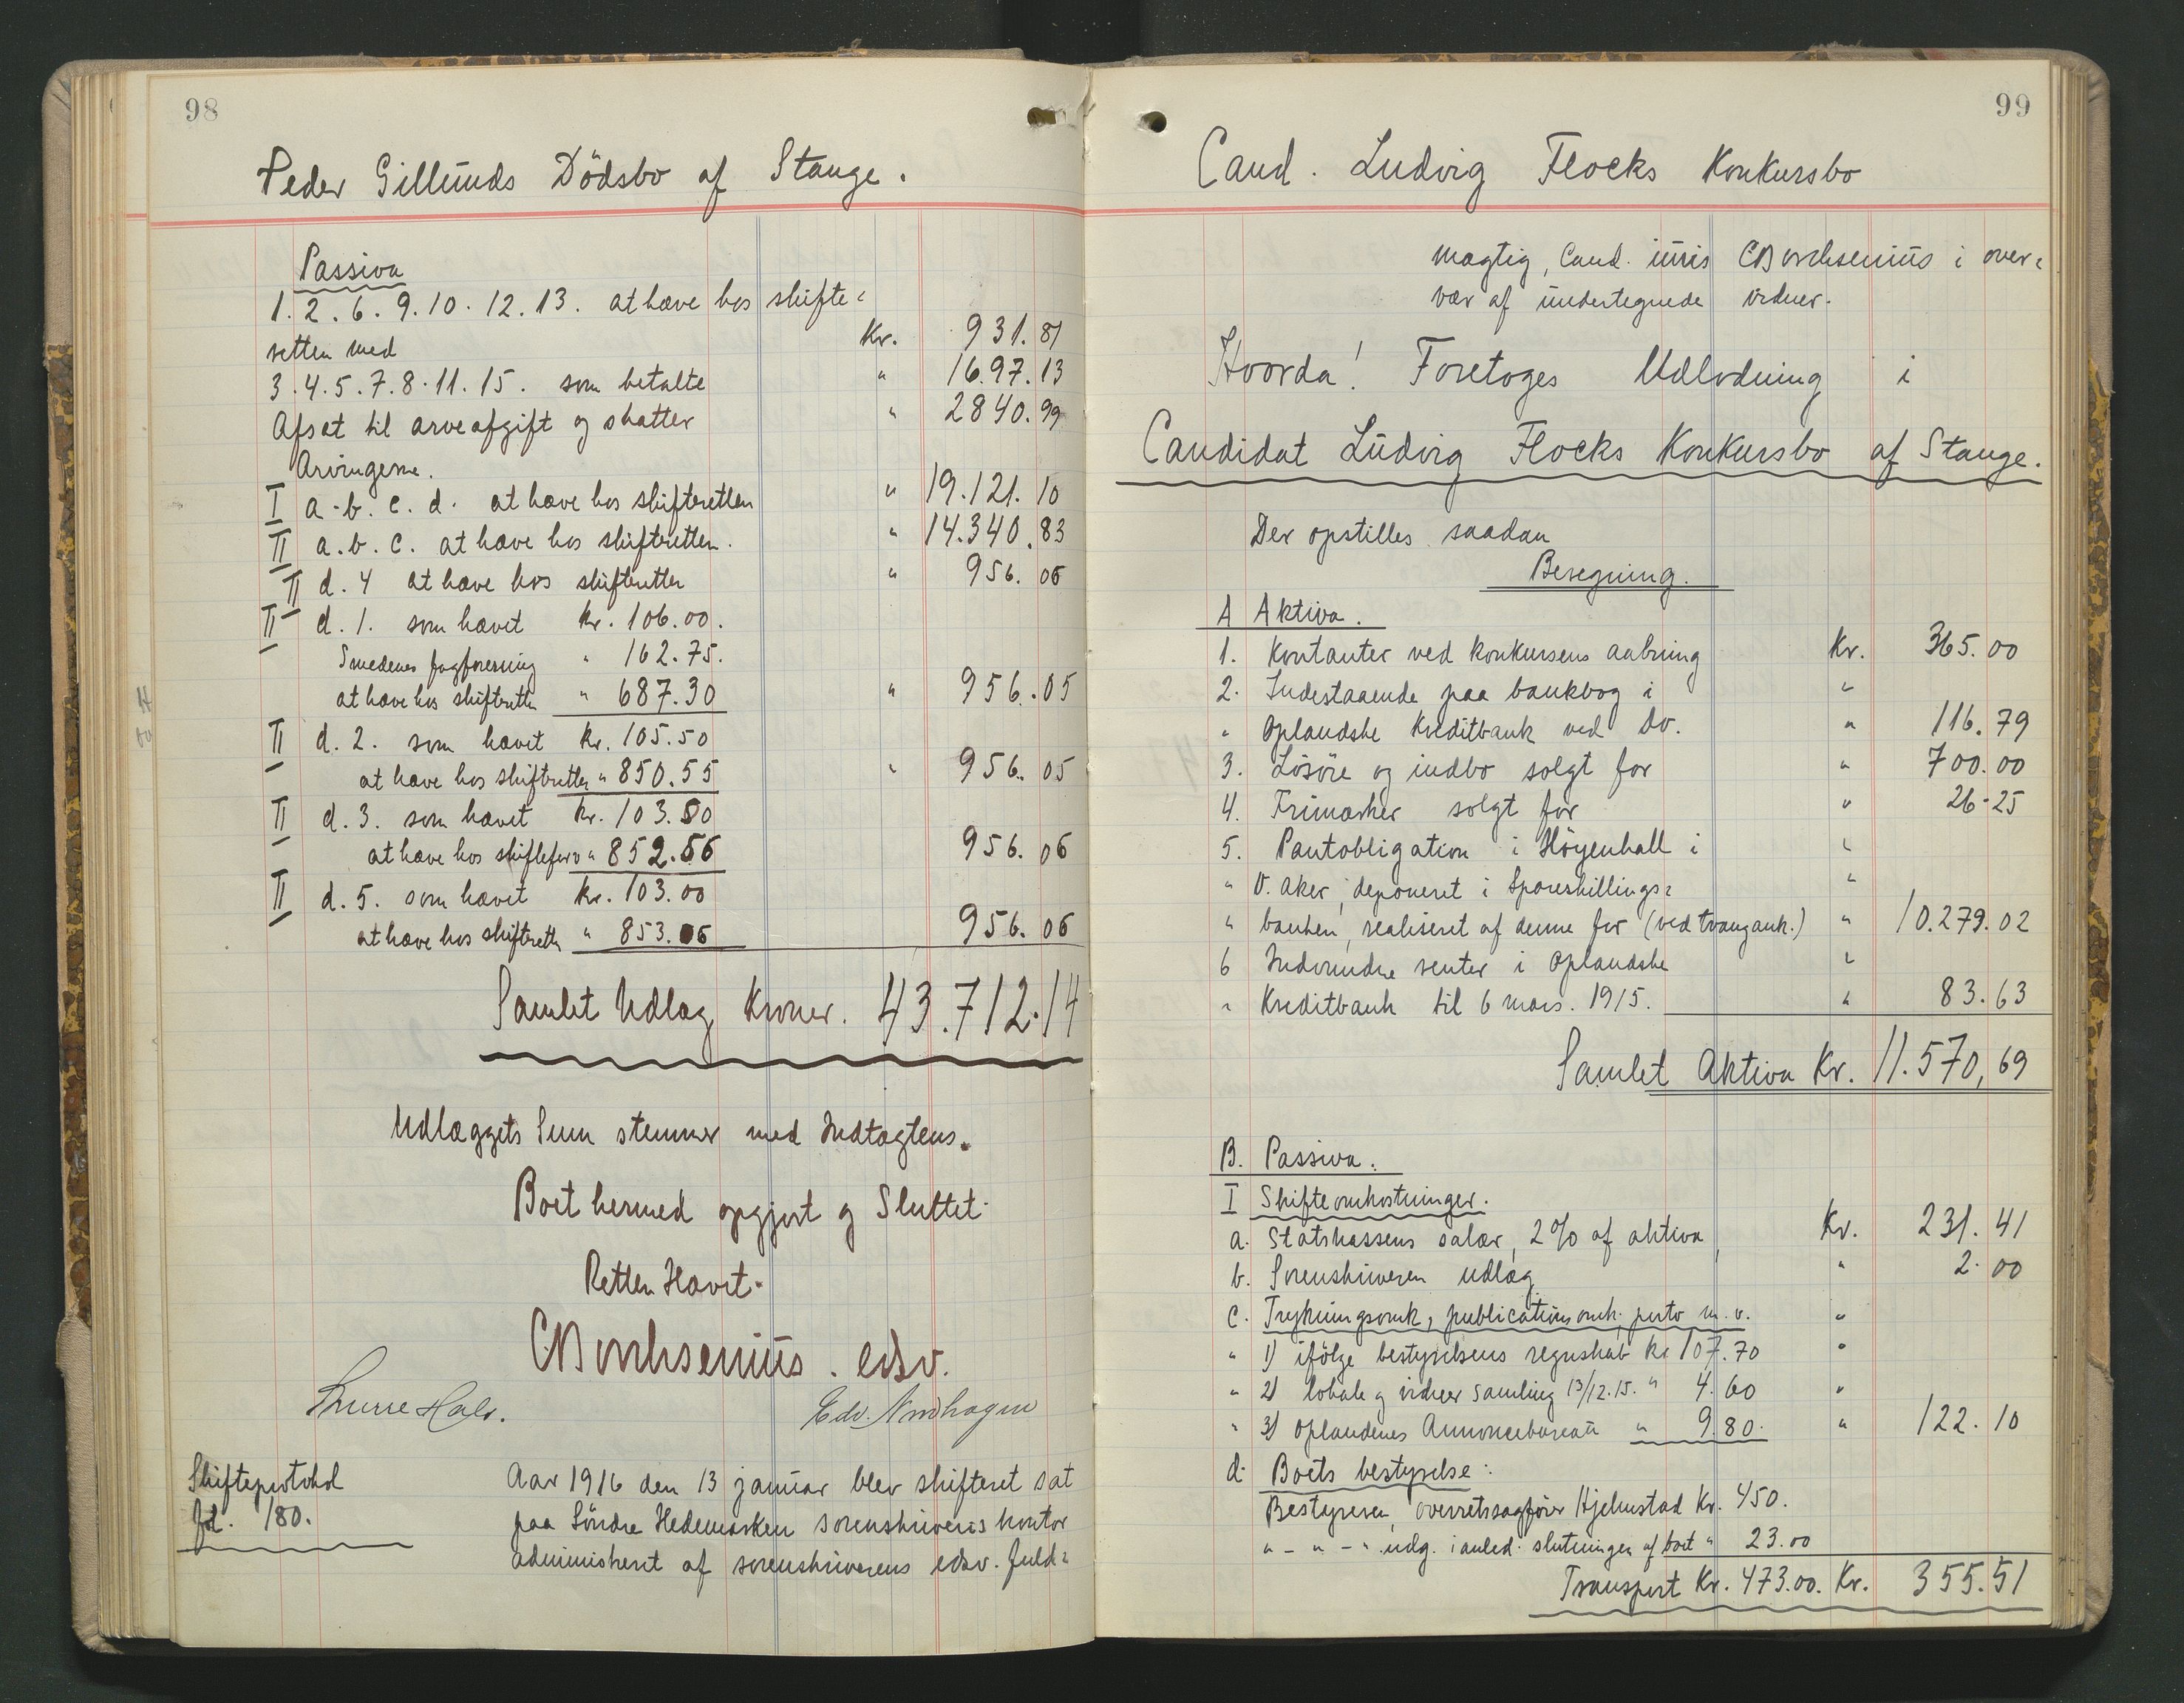 98
Peder Gillunds Dödsbo af Stange.
Passiva
1. 2. 6. 9. 10. 12. 13. at hæve hos skifte=
retten med Kr. 931. 81
3. 4. 5. 7. 8. 11. 15. som betalte " 16.97. 13
Afsat til arveafgift og skatter " 2840. 99
Arvingerne.
I a. b. c. d. at hæve hos skifteretten " 19.121. 10
II a. b. c. at hæve hos skifteretten. " 14.340. 83
II d. 4 at hæve hos skifteretten " 956. 06
II d. 1. som hævet kr. 106.00.
Smedenes fagforening " 162.75.
at hæve hos skifteretten " 687.30 " 956. 05
II d. 2. som hævet kr. 105.50
at hæve hos skifteretten " 850.55 " 956. 05
II d. 3. som hævet kr. 103.50
at hæve hos " 852.56 956. 06
II d. 5. som hævet kr. 103.00
at hæve hos skifteretten " 853.06 956. 06
Samlet Udlæg Kroner. 43.712.14
Udlæggets Sum stemmer med Indtægtens.
Boet hermed opgjort og Sluttet.
Retten Hævet.
CBorchsenius. edsv.
Skifteprotokol
fol. 180.
Aar 1916 den 13 januar blev skifteret sat
paa Söndre Hedemarken sorenskriveris kontor
administreret af sorenskriverens edsv. fuld=
99
Cand. Ludvig Flocks Konkursbo
mægtig, Cand. iuris CBorchsenius i over=
vær af undertegnede vidner.
Hvorda! Foretoges Udlodning i
Candidat Ludvig Flocks Konkursbo af Stange.
Der opstilles saadan
Beregning.
A Aktiva.
1. Kontanter ved konkursens aabning Kr. 365. 00
2. Indestaaende paa bankbog i "
" Oplandske Kreditbank ved Do. " 116. 79
3. Lösöre og indbo solgt for " 700. 00
4. Frimærker solgt for " 26. 25
5. Pantobligation i Höyenhall i "
" V. Aker, deponeret i Spareskillings= "
" banken, realiseret af denne for (ved tvangauk.) " 10.279. 02
6 Indvundne renter i Oplandske "
" Kreditbank til 6 mars. 1915. " 83. 63
Samlet Aktiva Kr. 11.570, 69
B. Passiva.
I Skifteomkostninger.
a. Statskassens salær, 2% af aktiva, Kr. 231. 41
b. Sorenskriveren udlæg " 2. 00
c. Trykningsomk, publicationsomk. porto m. v. "
" 1) ifölge bestyrelsens regnskab kr 107.70 "
" 2) lokale og vidner samling 13/12.15. " 4.60 "
" 3) Oplandenes Annoncebureau " 9.80. " 122. 10
d. Boets bestyrelse:
Bestyreren, overretssagförer Hjelmstad Kr. 450.
" - " - " udg. i anled. slutningen af boet " 23.00
Transport Kr. 473.00. Kr. 355. 51